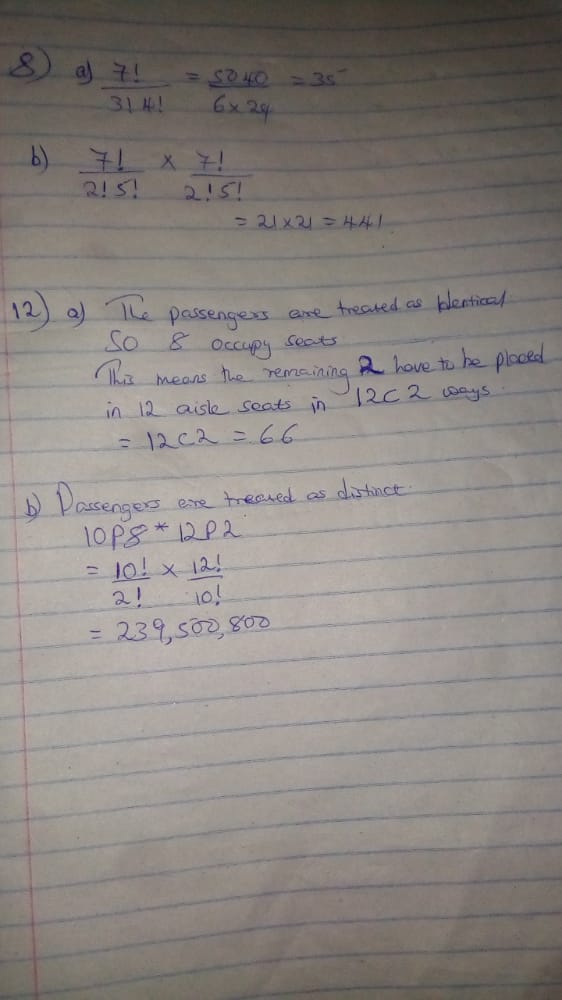 8) a) 7! / 3! 4! = 5040 / 6 x 24 = 35
b) 7! / 2! 5! x 7! / 2! 5!
= 21 x 21 = 441
12) a) The passengers are treated as identical
So 8 occupy seats
This means the remaining 2 have to be placed
in 12 aisle seats in 12C2 ways.
= 12C2 = 66
b) Passengers are treated as distinct.
10P8 * 12P2
= 10! / 2! x 12! / 10!
= 239,500,800